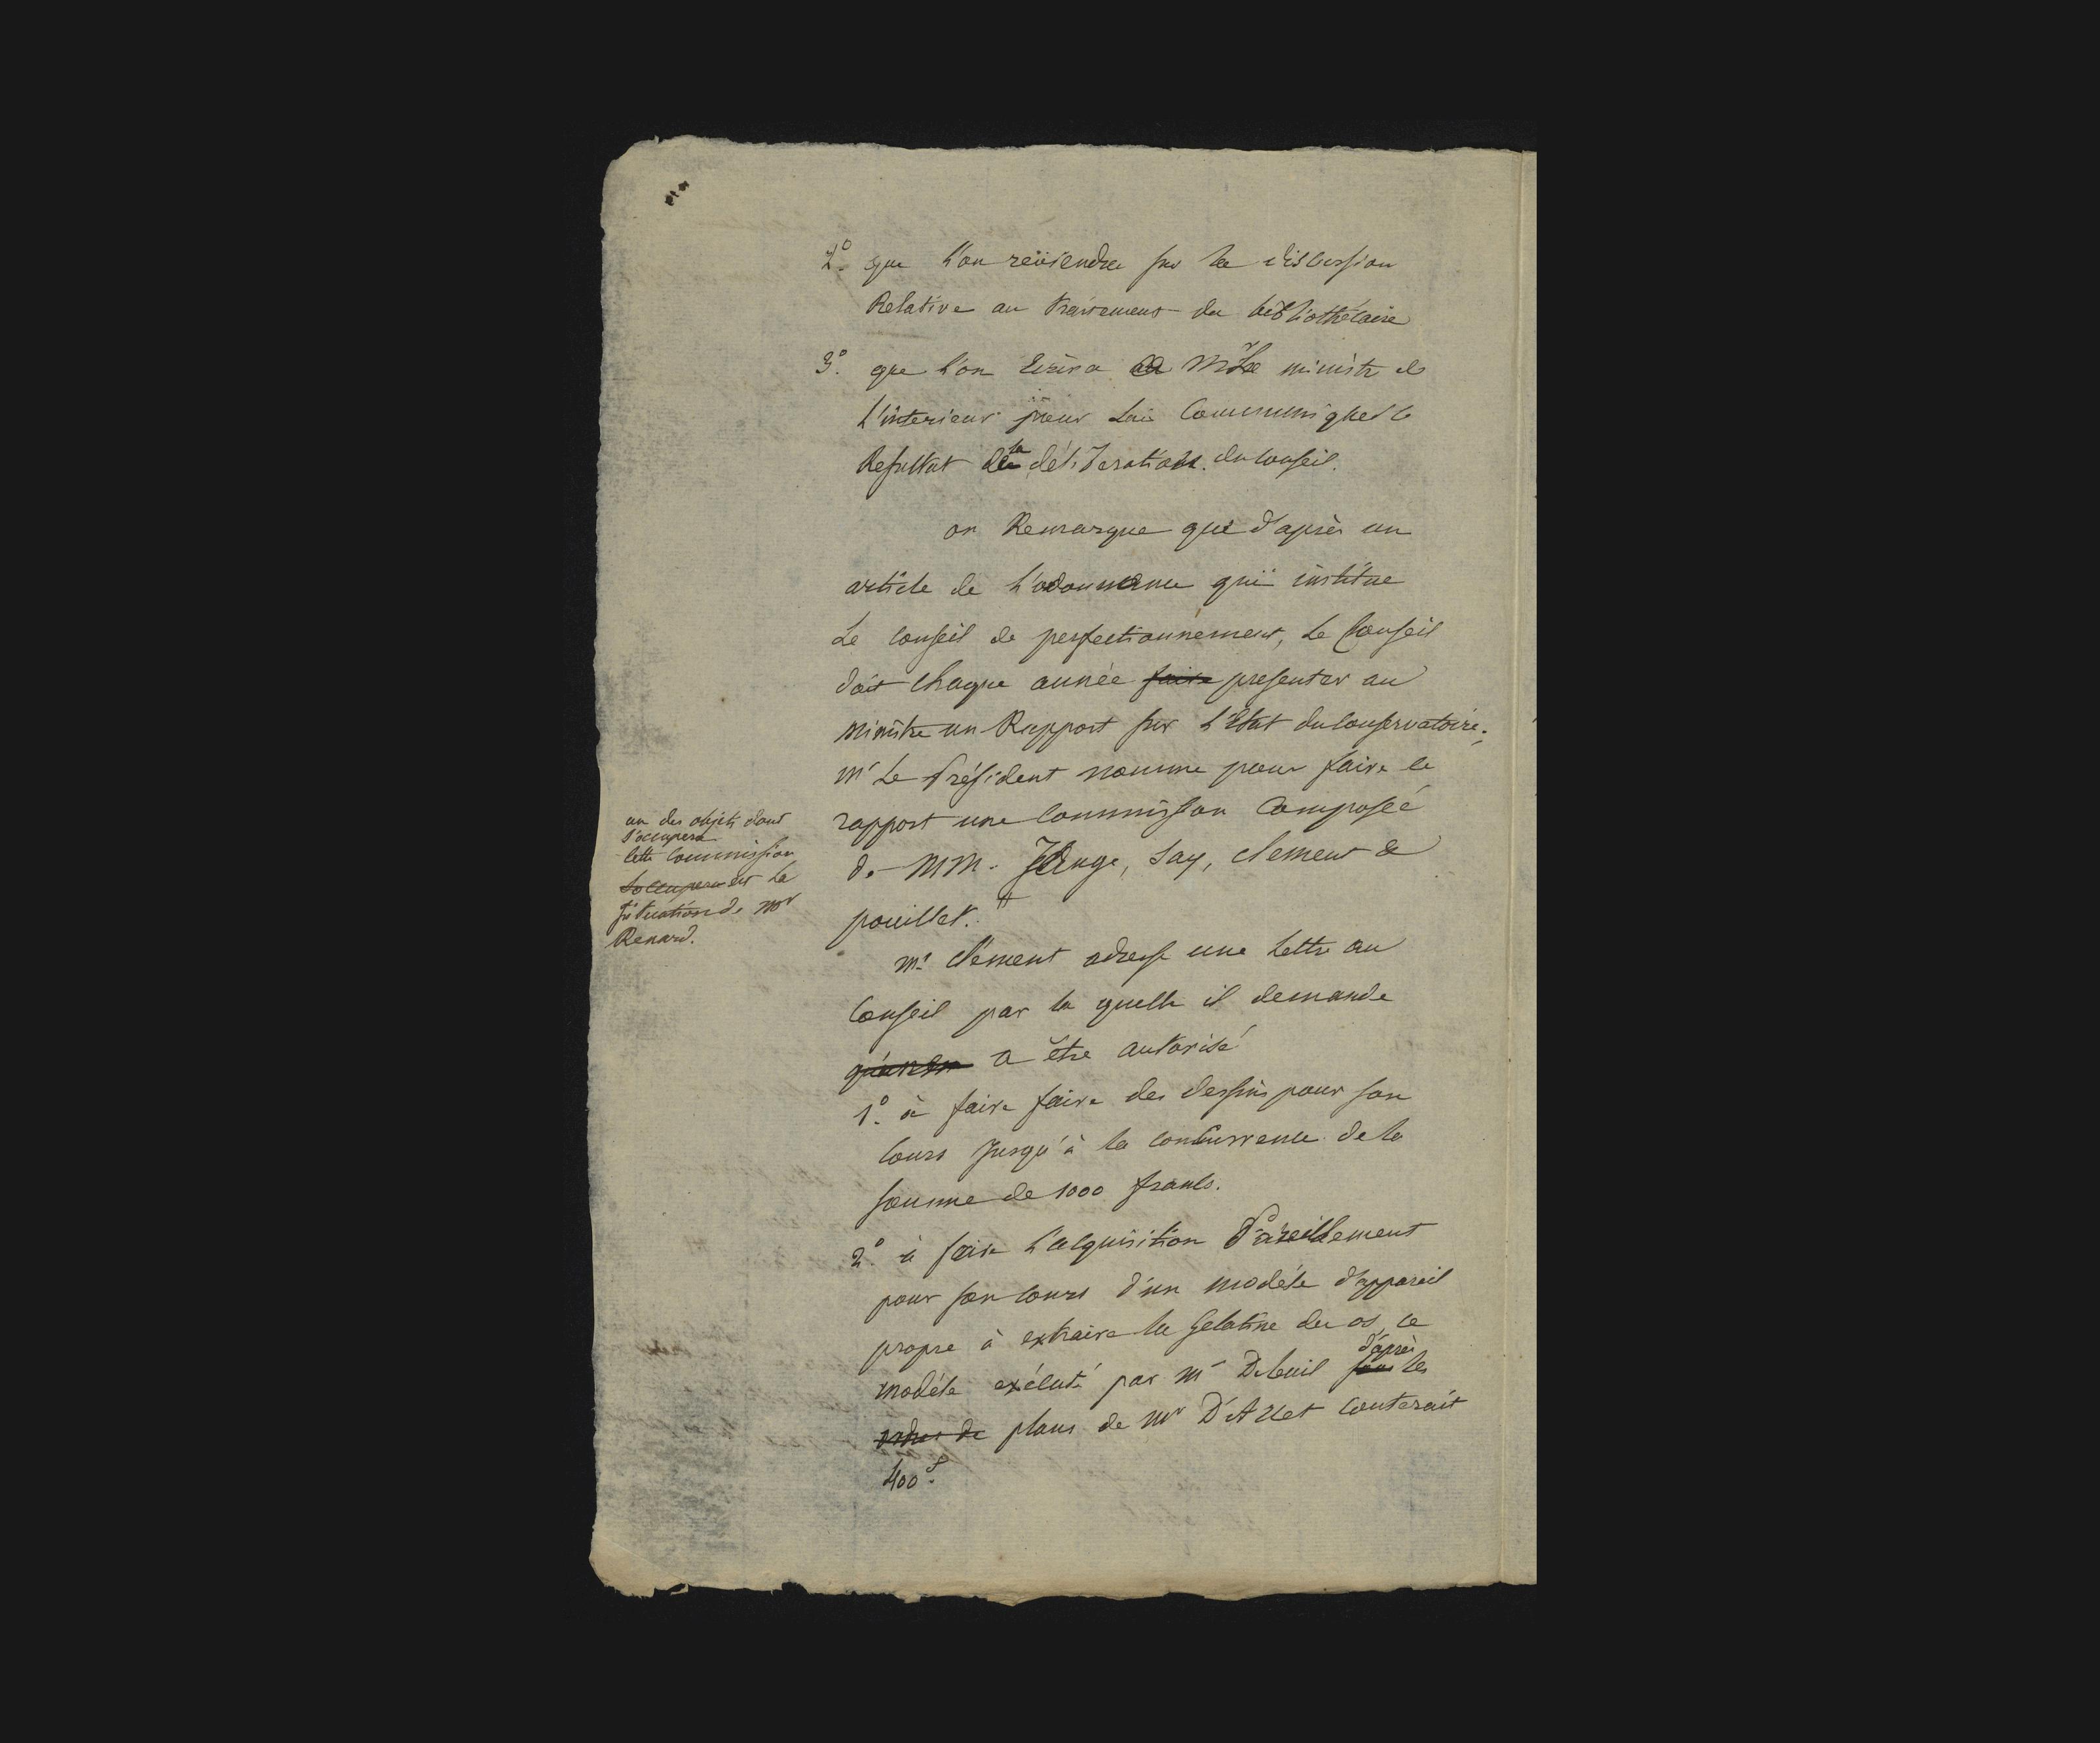 2.° que l'on reviendra sur la discussion
Relative au traitement du bibliothécaire
3.° que l'on Ecrira a Mr Le ministre de
L'interieur pour Lui Communiquer le
Resultat de la déliberation du Conseil.
on Remarque que d'après un
article de l'ordonnance qui institue
Le Conseil de perfectionnement, Le Conseil
doit Chaque année faire presenter au
Ministre un Rapport sur L'Etat du Conservatoire.
Mr Le Président nomme pour faire le
rapport une Commission Composée
de MM. Say, Clement &
pouillet. #
un des objets dont
s'occupera
cette Commission
s'occuperont est La
situation de Mr
Renard.
Mr Clément adresse une Lettre au
Conseil par la quelle il demande
a être autorisé
1.° à faire faire des dessins pour son
Cours Jusqu'à la concurrence de la
somme de 1000 francs.
2.° à faire l'acquisition Pareillement
pour son Cours d'un modéle d'appareil
propre à extraire la Gelatine des os, ce
modéle exécuté par Mr Deleuil sous d'après les
ordres de plans de Mr D'Arcet Couterait
400 f.